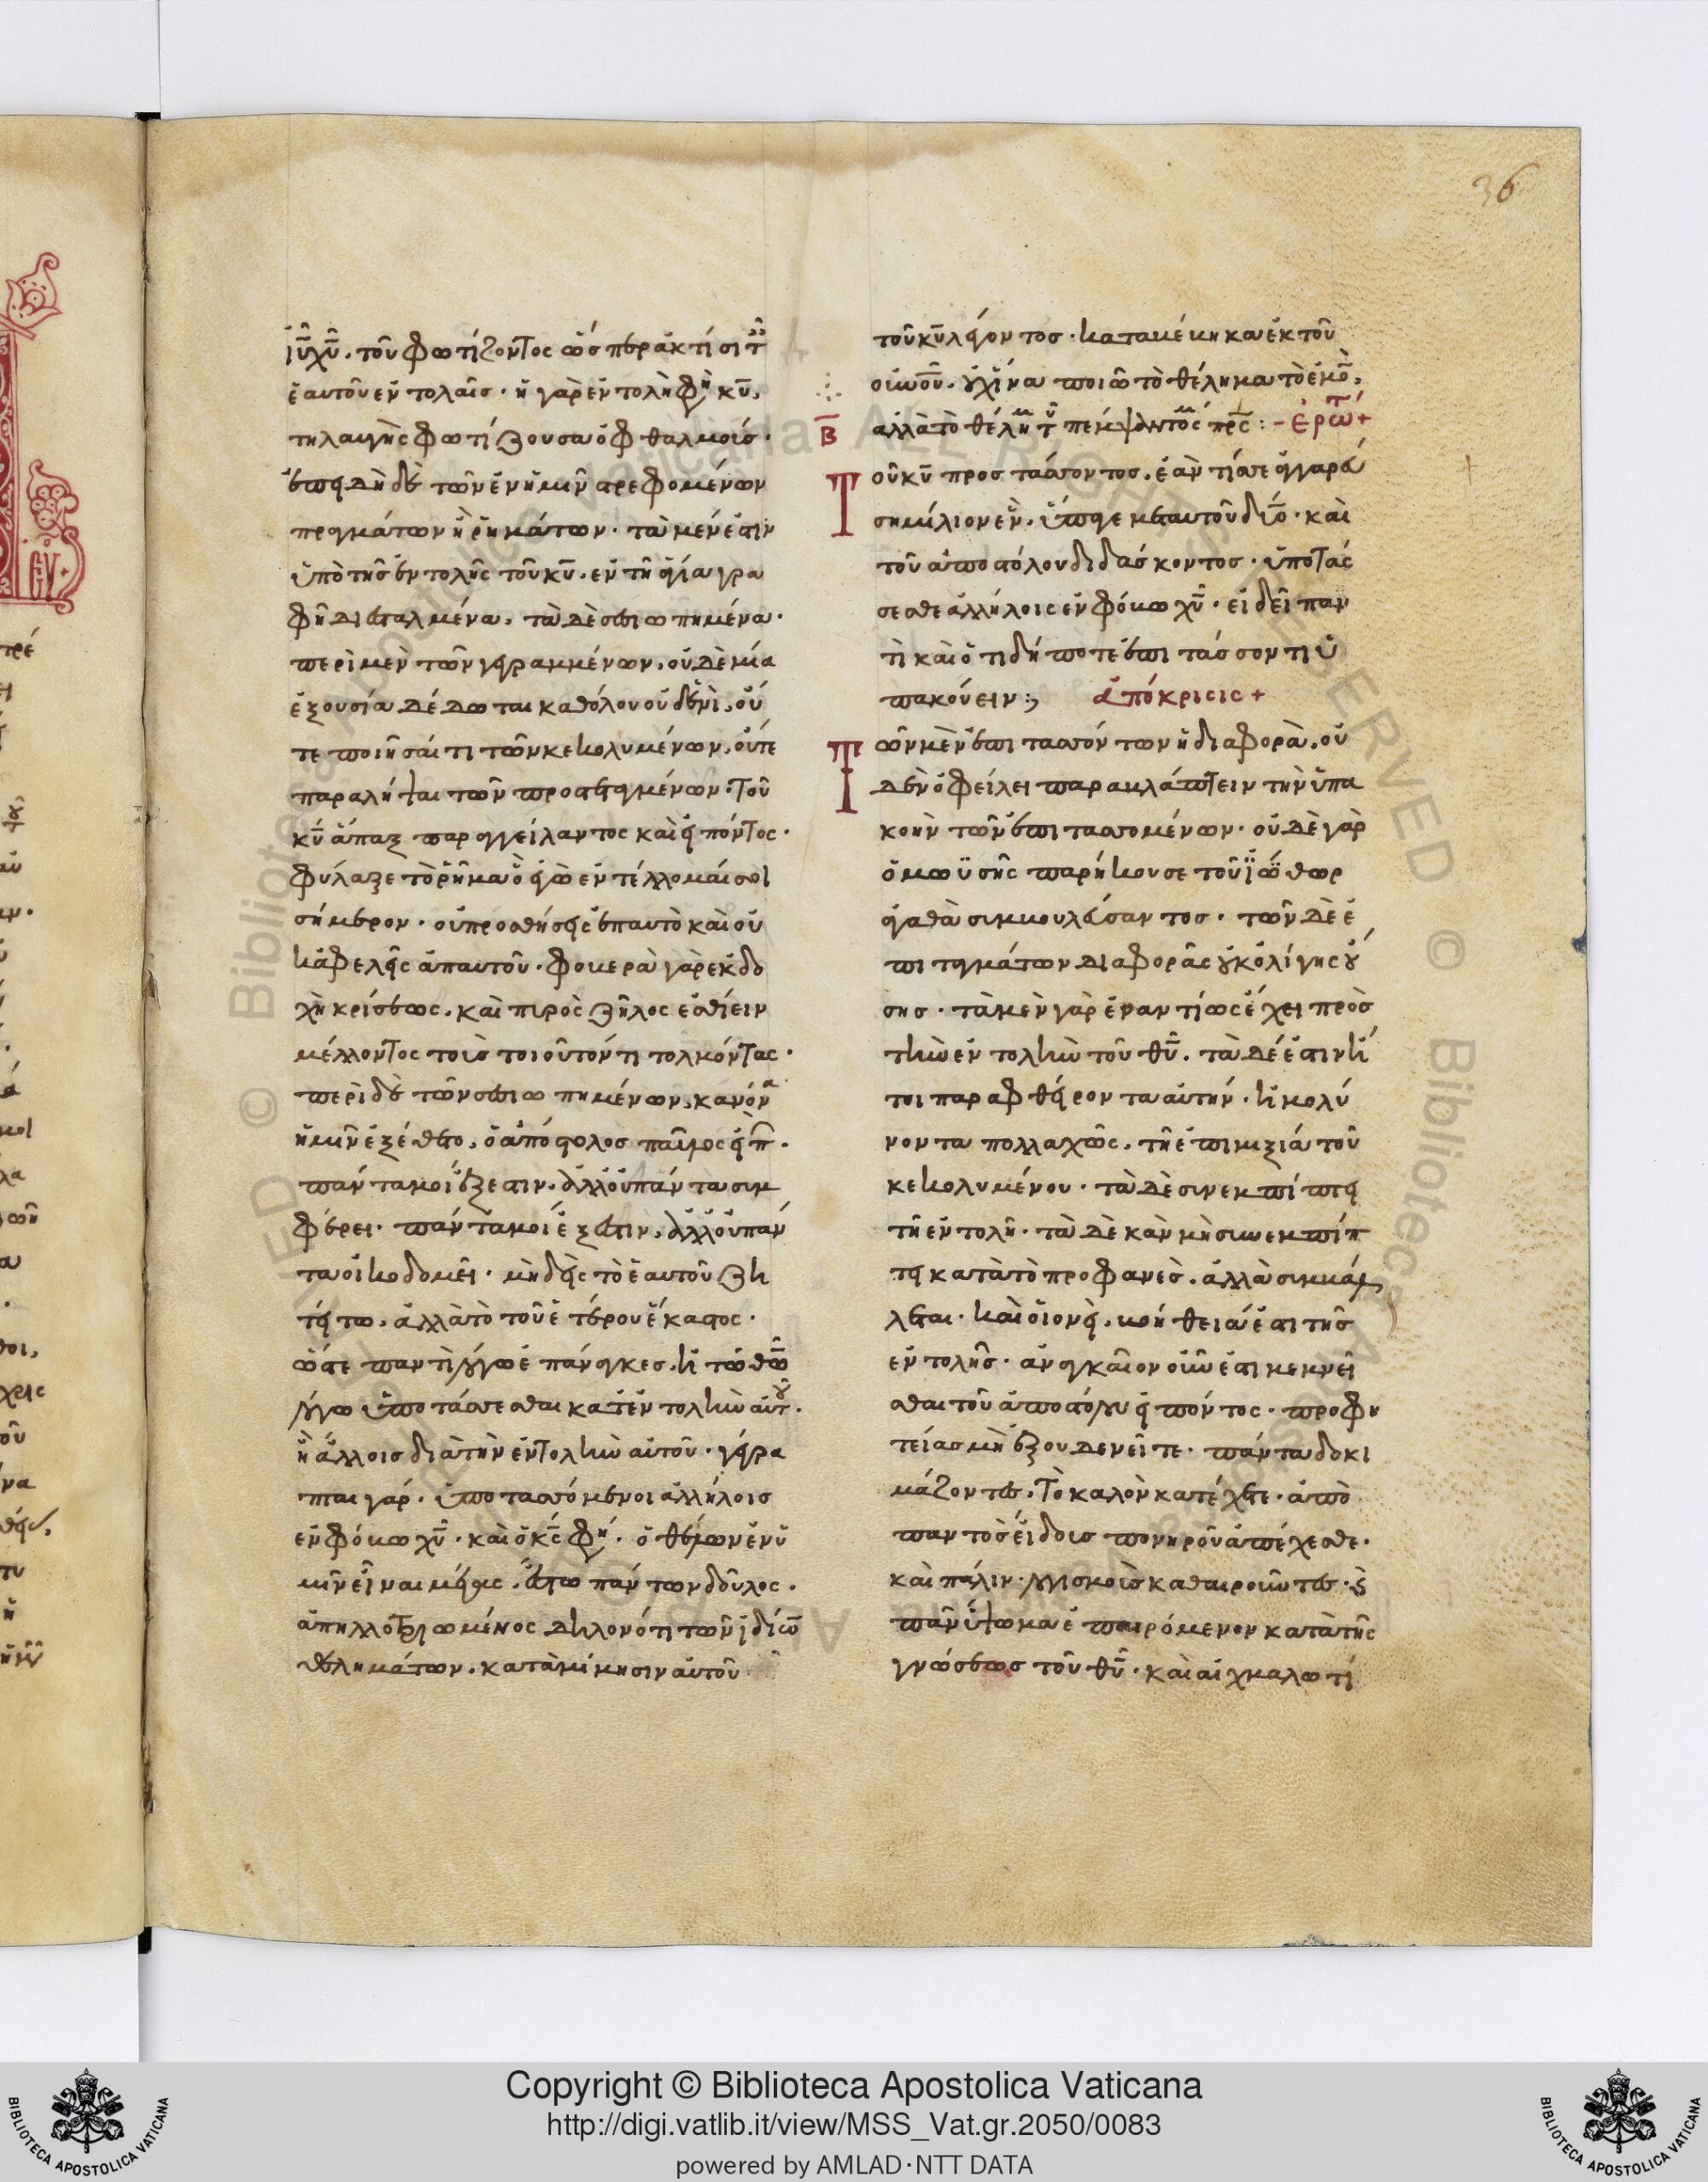 36
ἰῦ χῦ. τοῦ φωτίζοντος ὥσπερ ἀκτίσι τ
ἑαυτοῦ ἐντολαῖς. ἡ γὰρ ἐντολὴ φη κῦ,
τηλαυγὴς φωτίζουσα ὀφθαλμούς.
ἐπεὶ δὴ δὲ τῶν ἐν ἡμῖν στρεφομένων
πραγμάτων ἢ ῥημάτων. τὰ μέν ἐστιν
ὑπὸ τῆς ἐντολῆς τοῦ κῦ. ἐν τῇ ἁγία γρα
φῇ διεσταλμένα. τὰ δὲ σεσιωπημένα.
περὶ μὲν τῶν γεγραμμένων, οὐδὲ μία
ἐξουσία δέδωται καθόλου οὐδενὶ, οὔ
τε ποιῆσαί τι τῶν κεκολυμένων, οὔτε
παραλῆψαι τῶν προστεταγμένων. τοῦ
κῦ ἅπαξ παραγγείλαντος καὶ εἰπόντος.
φύλαξε τὸ ῥῆμα ὃ ἐγὼ ἐντέλλομαί σοι
σήμερον. οὐ προσθήσεις ἐπ αυτὸ καὶ οὐ
κἀφελεῖς ἀπ αυτοῦ. φοβερὰ γὰρ ἐκδο
χὴ κρίσεως, καὶ πυρὸς ζῆλος ἐσθίειν
μέλλοντος τοὺς τοιοῦτόν τι τολμόντας.
περὶ δὲ τῶν σεσιωπημένων, κανόνα
ἡμῖν ἐξέθετο, ὁ ἀπόστολος παῦλος εἰπ.
πάντα μοι ἔξεστιν. ἀλλ οὐ πάντα συμ
φέρει. πάντα μοι ἔξεστιν, ἀλλ οὐ πάν
τα οἰκοδομεῖ. μὴδεὶς τὸ ἑαυτοῦ ζη
τείτω, ἀλλὰ τὸ τοῦ ἑτέρου ἕκαστος.
ὥστε παντὶ λόγω ἐπάναγκες. ἢ τῶ θῶ
λόγω ὑποτάσσεσθαι κατ ἐντολὴν αὐτ.
ἢ ἄλλοις διὰ τὴν ἐντολὴν αὐτοῦ. γέγρα
πται γάρ. ὑποτασσόμενοι ἀλλήλοις
ἐν φόβω χῦ. καὶ ὁ κς φη. ὁ θέλων ἐν ὑ
μῖν εἶναι μέγας. ἔστω πάντων δοῦλος.
ἀπηλλοτριωμένος δηλονότι τῶν ἰδίων
θελημάτων. κατὰ μίμησιν αὐτοῦ
τοῦ κῦ λέγοντος. καταβέβηκα ἐκ τοῦ
οὐνοῦ. οὐχ ἵνα ποιῶ τὸ θέλημα τὸ ἐμὸ,
ἀλλὰ τὸ θέλημα τοῦ πέμψαντός με πρς : - ἐρωτ +
Β
Τοῦ κῦ προστάσσοντος. ἐάν τίς σε ἀγγαρεύ
ση μίλιον ἓν. ὕπαγε μετ αυτοῦ δύο. καὶ
τοῦ ἀποστόλου διδάσκοντος. ὑποτάσ
σεσθε ἀλλήλοις ἐν φόβω χῦ. εἰ δεῖ παν
τὶ καὶ ὅ τι δήποτε ἐπιτάσσοντι ὑ
πακούειν ;, ἀπόκρισις +
Τῶν μὲν ἐπιτασσόντων ἡ διαφορὰ, οὐ
δὲν ὀφείλει παραβλάπτειν τὴν ὑπα
κοὴν τῶν ἐπιτασσομένων. οὐδὲ γὰρ
ὁ μωϋσῆς παρήκουσε τοῦ ἰὼθωρ
ἀγαθὰ συμβουλεύσαντος. τῶν δὲ ἐ
πιταγμάτων διαφορᾶς οὐκ ὀλίγης οὔ
σης. τὰ μὲν γὰρ ἐναντίως ἔχει πρὸς
τὴν ἐντολὴν τοῦ θῦ. τὰ δέ ἐστιν ἤ
τοι παραφθείροντα αὐτήν. ἢ μολύ
νοντα πολλαχῶς. τῇ ἐπιμιξία τοῦ
κεκολυμένου. τὰ δὲ συνεμπίπτει
τῇ ἐντολῇ. τὰ δὲ κἂν μὴ συνεμπίπ
τει κατὰ τὸ προφανὲς. ἀλλὰ συμβάλ
λεται. καὶ οἱονεὶ. βοήθειά ἐστι τῆς
ἐντολῆς. ἀναγκαῖον οὖν ἐστι μεμνεῖ
σθαι τοῦ ἀποστόλου εἰπόντος. προφη
τείας μὴ ἐξουδενεῖτε. πάντα δοκι
μάζοντες. τὸ καλὸν κατέχετε. ἀπὸ
παντὸς εἴδους πονηροῦ ἀπέχεσθε.
καὶ πάλιν. λογισμοὺς καθαιροῦντες. κ
πᾶν ὕψωμα ἐπαιρόμενον κατὰ τῆς
γνώσεως τοῦ θῦ. καὶ αἰχμαλωτί
Copyright © Biblioteca Apostolica Vaticana
http://digi.vatlib.it/view/MSS_Vat.gr.2050/0083
powered by AMLAD·NTT DATA
BIBLIOTECA APOSTOLICA VATICANA
BIBLIOTECA APOSTOLICA VATICANA